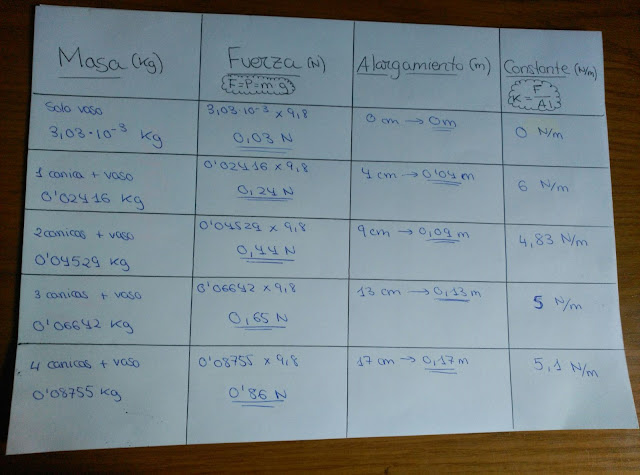 Masa (Kg)
Fuerza (N)
F=P=m·g
Alargamiento (m)
Constante (N/m)
K = F/Al
Solo vaso
3,03·10⁻³ Kg
3,03·10⁻³ × 9,8
0,03 N
0 cm → 0m
0 N/m
1 canica + vaso
0'02416 Kg
0'02416 × 9,8
0,24 N
4 cm → 0'04 m
6 N/m
2 canicas + vaso
0'04529 Kg
0'04529 × 9,8
0,44 N
9 cm → 0,09 m
4,83 N/m
3 canicas + vaso
0'06642 Kg
0'06642 × 9,8
0,65 N
13 cm → 0,13 m
5 N/m
4 canicas + vaso
0'08755 Kg
0'08755 × 9,8
0'86 N
17 cm → 0,17 m
5,1 N/m